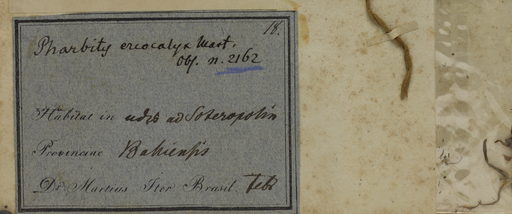 18.
Pharbitis eriocalyx Mart.
Obs. n. 2162
Habitat in udis ad Soteropolin
Provinciae Bahiensis
Dr Martius Iter Brasil. Febr